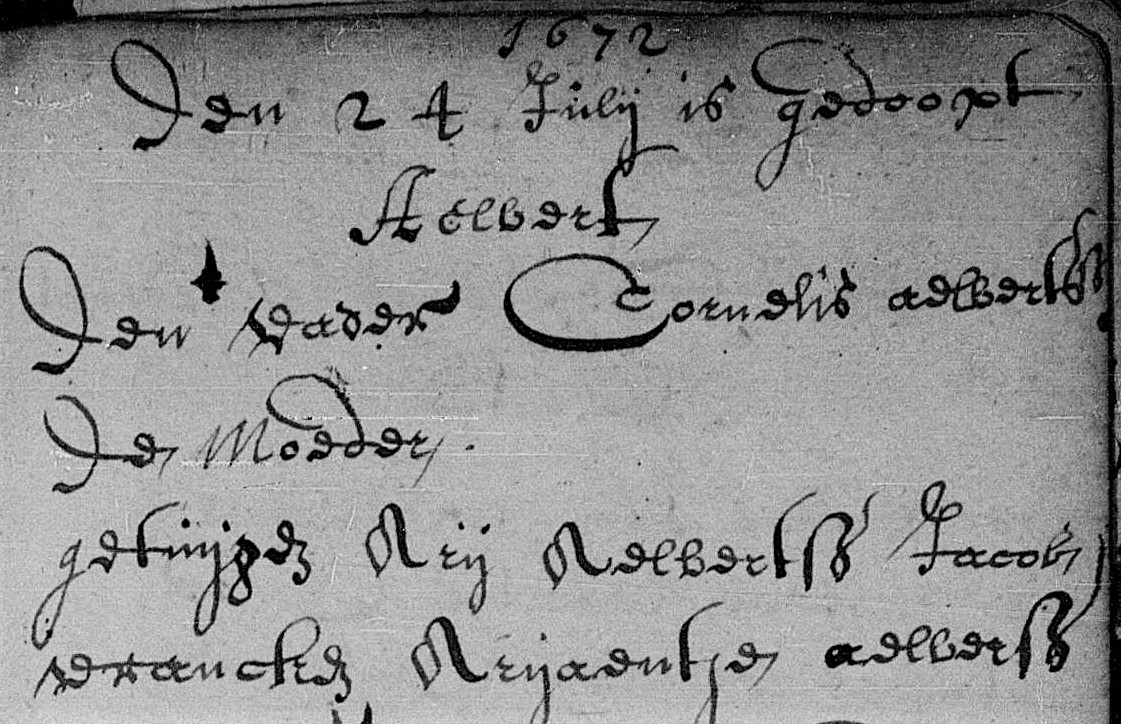 1672
Den 24 Julij is gedoopt
Aelbert
Den vader Cornelis aelbertss
De Moeder.
getuijgen Arij Aelbertss Jacob
verancken Arijaentje aelberss